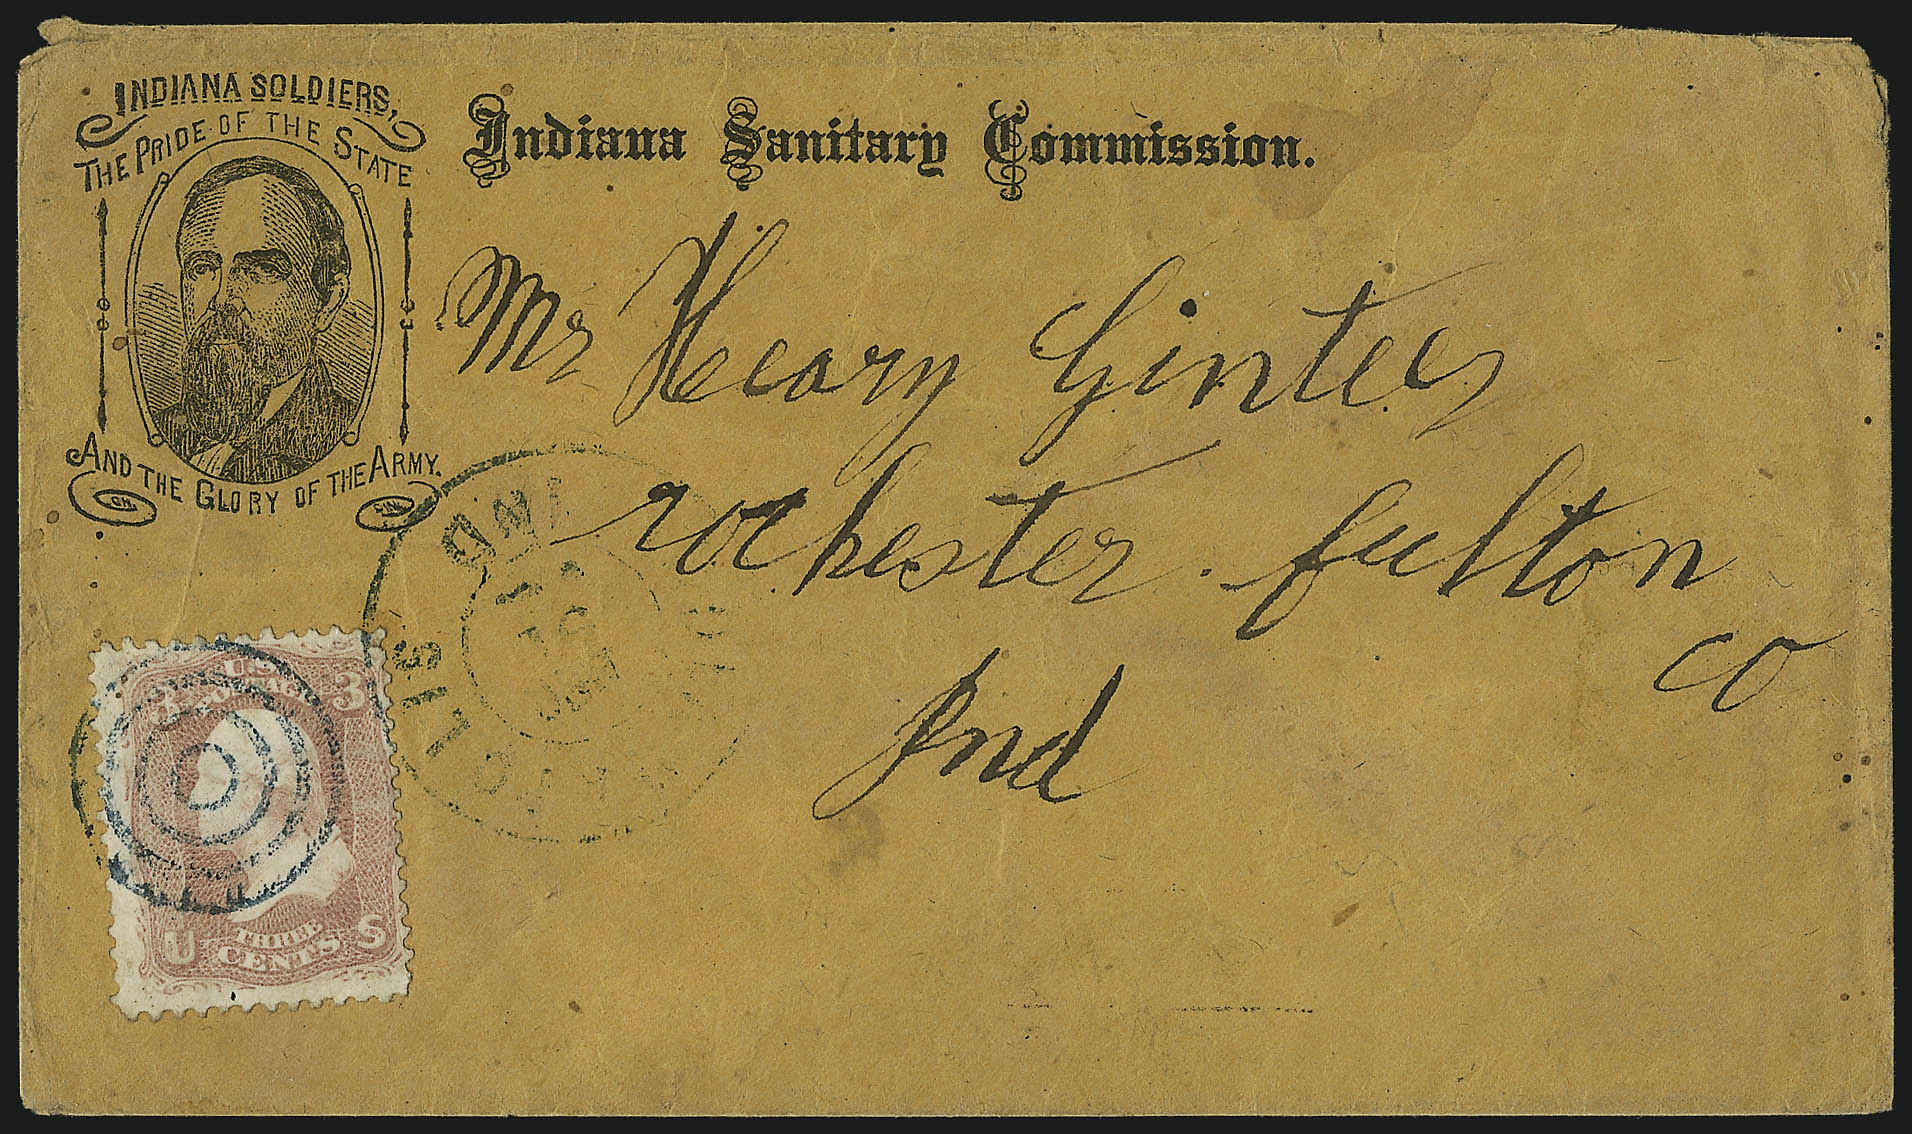 INDIANA SOLDIERS,
THE PRIDE OF THE STATE
AND THE GLORY OF THE ARMY.
Indiana Sanitary Commission.
Mr Heary Ginter
rochester. fulton
co
Ind
IND
LIS
U.S.
POSTAGE
3 3
U S
THREE
CENTS